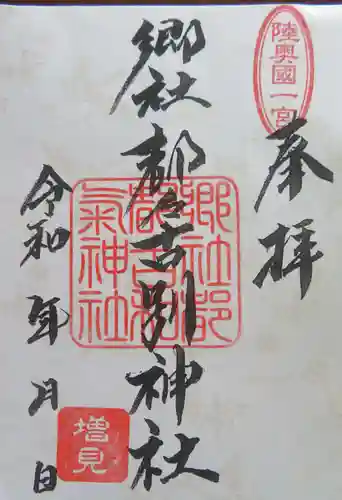 陸奥國一宮
奉拝
郷社都々古別神社
郷社都
都古和
氣神社
令和 年 月 日
増見